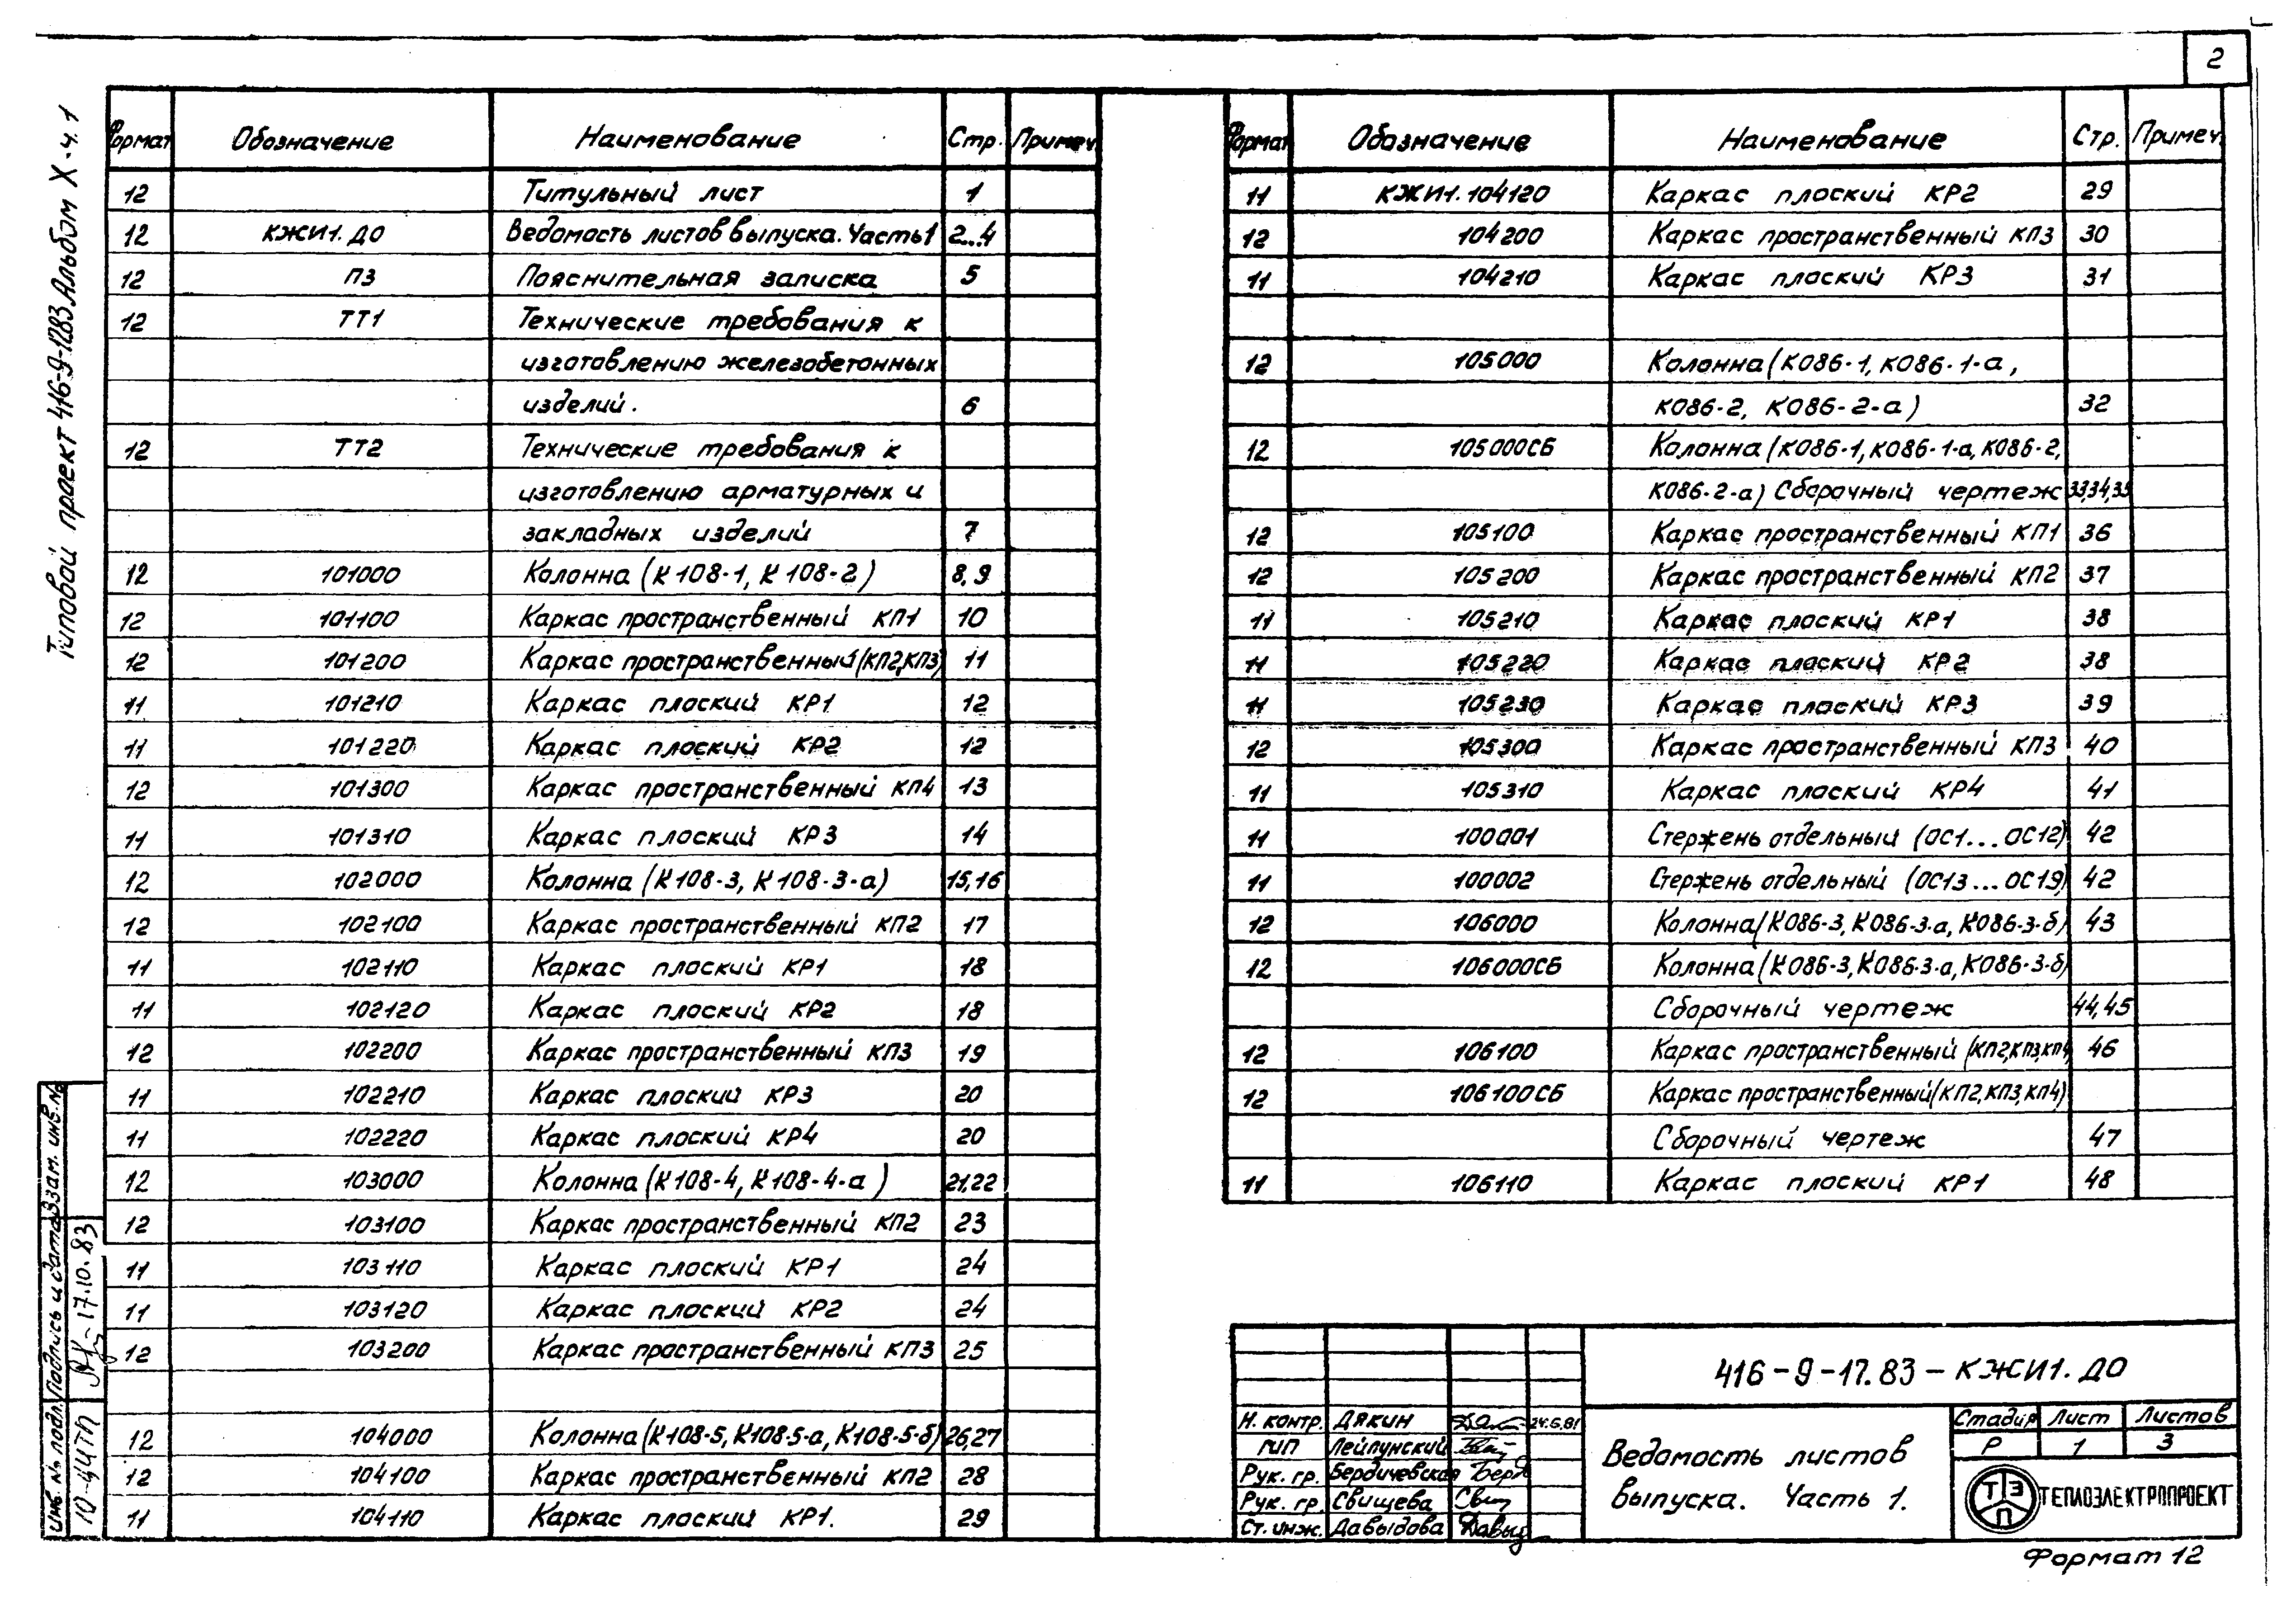 2
Типовой проект 416-9-1283 Альбом X-ч.1
Формат Обозначение Наименование Стр. Примеч.
12 Титульный лист 1
12 КЖИ1.ДО Ведомость листов выпуска. Часть 1 2...4
12 ПЗ Пояснительная записка 5
12 ТТ1 Технические требования к
изготовлению железобетонных
изделий. 6
12 ТТ2 Технические требования к
изготовлению арматурных и
закладных изделий 7
12 101000 Колонна (К108-1, К108-2) 8,9
12 101100 Каркас пространственный КП1 10
12 101200 Каркас пространственный (КП2,КП3) 11
11 101210 Каркас плоский КР1 12
11 101220 Каркас плоский КР2 12
12 101300 Каркас пространственный КП4 13
11 101310 Каркас плоский КР3 14
12 102000 Колонна (К108-3, К108-3-а) 15,16
12 102100 Каркас пространственный КП2 17
11 102110 Каркас плоский КР1 18
11 102120 Каркас плоский КР2 18
12 102200 Каркас пространственный КП3 19
11 102210 Каркас плоский КР3 20
11 102220 Каркас плоский КР4 20
12 103000 Колонна (К108-4, К108-4-а) 21,22
12 103100 Каркас пространственный КП2 23
11 103110 Каркас плоский КР1 24
11 103120 Каркас плоский КР2 24
12 103200 Каркас пространственный КП3 25
12 104000 Колонна (К108-5, К108-5-а, К108-5-б) 26,27
12 104100 Каркас пространственный КП2 28
11 104110 Каркас плоский КР1. 29
Формат Обозначение Наименование Стр. Примеч.
11 КЖИ1.104120 Каркас плоский КР2 29
12 104200 Каркас пространственный КП3 30
11 104210 Каркас плоский КР3 31
12 105000 Колонна (К086-1, К086-1-а,
К086-2, К086-2-а) 32
12 105000СБ Колонна (К086-1, К086-1-а, К086-2,
К086-2-а) Сборочный чертеж 33,34,35
12 105100 Каркас пространственный КП1 36
12 105200 Каркас пространственный КП2 37
11 105210 Каркас плоский КР1 38
11 105220 Каркас плоский КР2 38
11 105230 Каркас плоский КР3 39
12 105300 Каркас пространственный КП3 40
11 105310 Каркас плоский КР4 41
11 100001 Стержень отдельный (ОС1...ОС12) 42
11 100002 Стержень отдельный (ОС13...ОС19) 42
12 106000 Колонна (К086-3, К086-3-а, К086-3-б) 43
12 106000СБ Колонна (К086-3, К086-3-а, К086-3-б)
Сборочный чертеж 44,45
12 106100 Каркас пространственный (КП2,КП3,КП4 46
12 106100СБ Каркас пространственный (КП2,КП3,КП4)
Сборочный чертеж 47
11 106110 Каркас плоский КР1 48
Взам. инв. №
Подпись и дата 17.10.83
Инв. № подл.
416-9-17.83-КЖИ1.ДО
Н. контр. Дякин 24.6.81
ГИП Лейпунский
Рук. гр. Бердичевская
Рук. гр. Свищева
Ст. инж. Давыдова
Ведомость листов
выпуска. Часть 1.
Стадия Лист Листов
Р 1 3
ТЭП ТЕПЛОЭЛЕКТРОПРОЕКТ
Формат 12